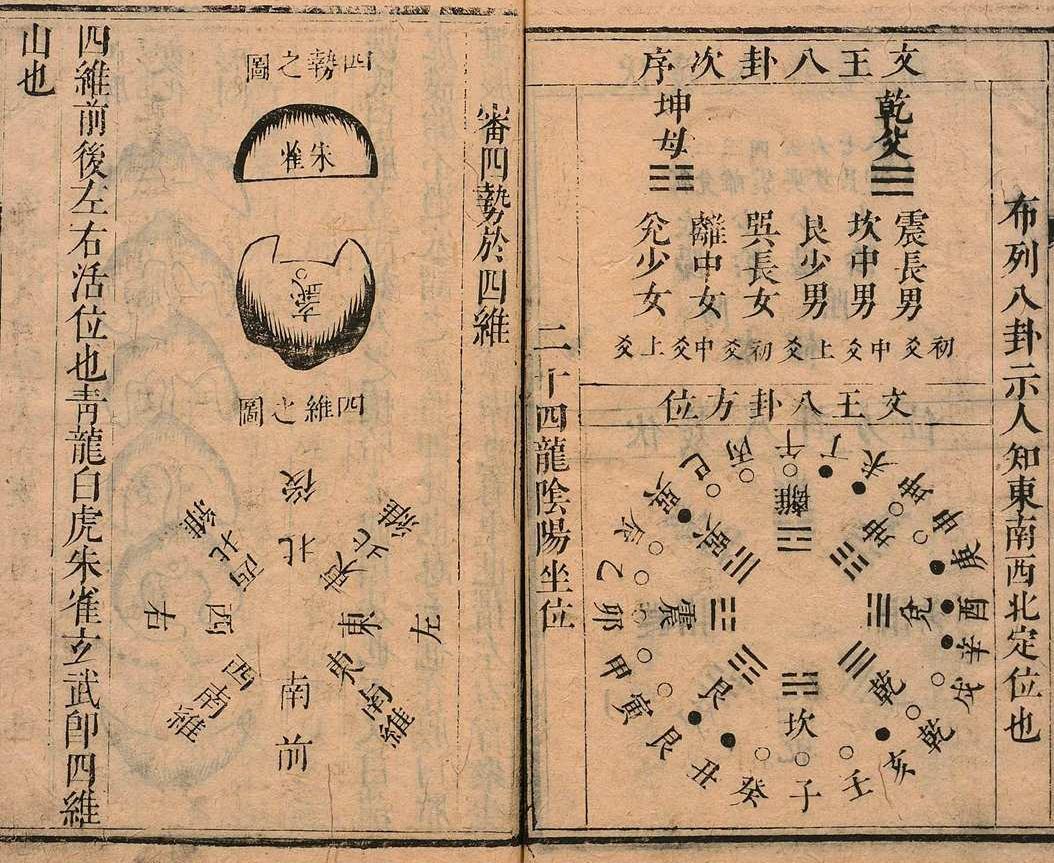 布列八卦示人知東南西北定位也
文王八卦次序
乾父
坤母
震長男
坎中男
艮少男
巽長女
離中女
兊少女
初爻中爻上爻初爻中爻上爻
文王八卦方位
離
坤
兌
乾
坎
艮
震
巽
午
丁
未
坤
申
庚
酉
辛
戌
乾
亥
壬
子
癸
丑
艮
寅
甲
卯
乙
辰
巽
巳
丙
二十四龍陰陽坐位
審四勢於四維
四勢之圖
朱雀
玄武
四維之圖
後
北
東北維
左
東
東南維
南
前
西南維
西
右
西北維
四維前後左右活位也靑龍白虎朱雀玄武卽四維
山也